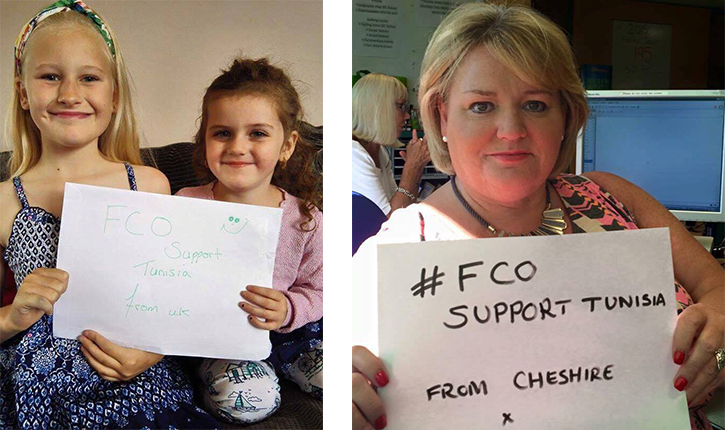 FCO
Support
Tunisia
from uk
#FCO
SUPPORT TUNISIA
FROM CHESHIRE
x
195